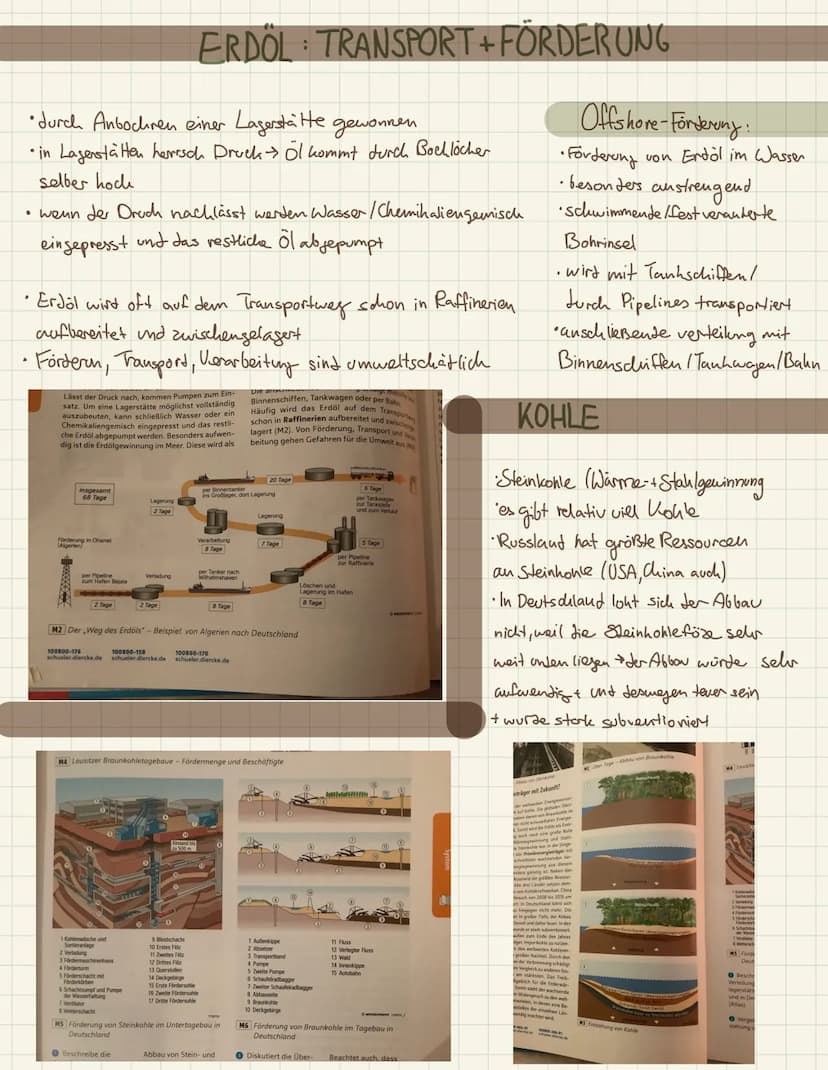 ERDÖL : TRANSPORT + FÖRDERUNG
• durch Anbohren einer Lagerstätte gewonnen
• in Lagerstätten herrsch Druck → Öl kommt durch Bohlöcher
selber hoch
• wenn der Druck nachlässt werden Wasser/Chemikaliengemisch
eingepresst und das restliche Öl abgepumpt
• Erdöl wird oft auf dem Transportweg schon in Raffinerien
aufbereitet und zwischengelagert
• Fördern, Transport, Verarbeitung sind umweltschätlich
Offshore-Förderung:
• Förderung von Erdöl im Wasser
• besonders anstrengend
• schwimmende/fest verankerte
Bohrinsel
• wird mit Tankschiffen/
durch Pipelines transportiert
• anschließende verteilung mit
Binnenschiffen/Tankwagen/Bahn
Lässt der Druck nach, kommen Pumpen zum Ein-
satz. Um eine Lagerstätte möglichst vollständig
auszubeuten, kann schließlich Wasser oder ein
Chemikaliengemisch eingepresst und das restli-
che Erdöl abgepumpt werden. Besonders aufwen-
dig ist die Erdölgewinnung im Meer. Diese wird als
Binnenschiffen, Tankwagen oder per Bahn.
Häufig wird das Erdöl auf dem Transportweg
schon in Raffinerien aufbereitet und zwischenge-
lagert (M2). Von Förderung, Transport und Verar-
beitung gehen Gefahren für die Umwelt aus
insgesamt
68 Tage
Lagerung
2 Tage
per Binnentanker
ins Großlager, dort Lagerung
20 Tage
6 Tage
per Tankwagen
zur Tankstelle
und zum Verkauf
Verarbeitung
8 Tage
Lagerung
7 Tage
5 Tage
per Pipeline
zur Raffinerie
Förderung in Ohanet
(Algerien)
per Pipeline
zum Hafen Bejaia
2 Tage
Verladung
2 Tage
per Tanker nach
Wilhelmshaven
8 Tage
Löschen und
Lagerung im Hafen
8 Tage
M2 Der „Weg des Erdöls" – Beispiel von Algerien nach Deutschland
100800-176
schueler.diercke.de
100800-158
schueler.diercke.de
100800-170
schueler.diercke.de
KOHLE
• Steinkohle (Wärme-+Stahlgewinnung
• es gibt relativ viel Kohle
• Russland hat größte Ressourcen
an Steinkohle (USA, China auch)
• In Deutschland loht sich der Abbau
nicht, weil die Steinkohleföze sehr
weit unten liegen → der Abbau würde sehr
aufwendig + und deswegen teuer sein
+ wurde stark subventioniert
M4 Lausitzer Braunkohletagebaue – Fördermenge und Beschäftigte
1 Kohlenwäsche und
Sortieranlage
2 Verladung
3 Fördermaschinenhaus
4 Förderturm
5 Förderschacht mit
Förderkörben
6 Schachtsumpf und Pumpe
der Wasserhaltung
7 Ventilator
8 Wetterschacht
9 Blindschacht
10 Erstes Flöz
11 Zweites Flöz
12 Drittes Flöz
13 Querstollen
14 Deckgebirge
15 Erste Fördersohle
16 Zweite Fördersohle
17 Dritte Fördersohle
M5 Förderung von Steinkohle im Untertagebau in
Deutschland
1 Außenkippe
2 Absetzer
3 Transportband
4 Pumpe
5 Zweite Pumpe
6 Schaufelradbagger
7 Zweiter Schaufelradbagger
8 Abbauseite
9 Braunkohle
10 Deckgebirge
11 Fluss
12 Verlegter Fluss
13 Wald
14 Innenkippe
15 Autobahn
M6 Förderung von Braunkohle im Tagebau in
Deutschland
Beschreibe die
Abbau von Stein- und
Diskutiert die Über-
Beachtet auch, dass
M3 Entstehung von Kohle